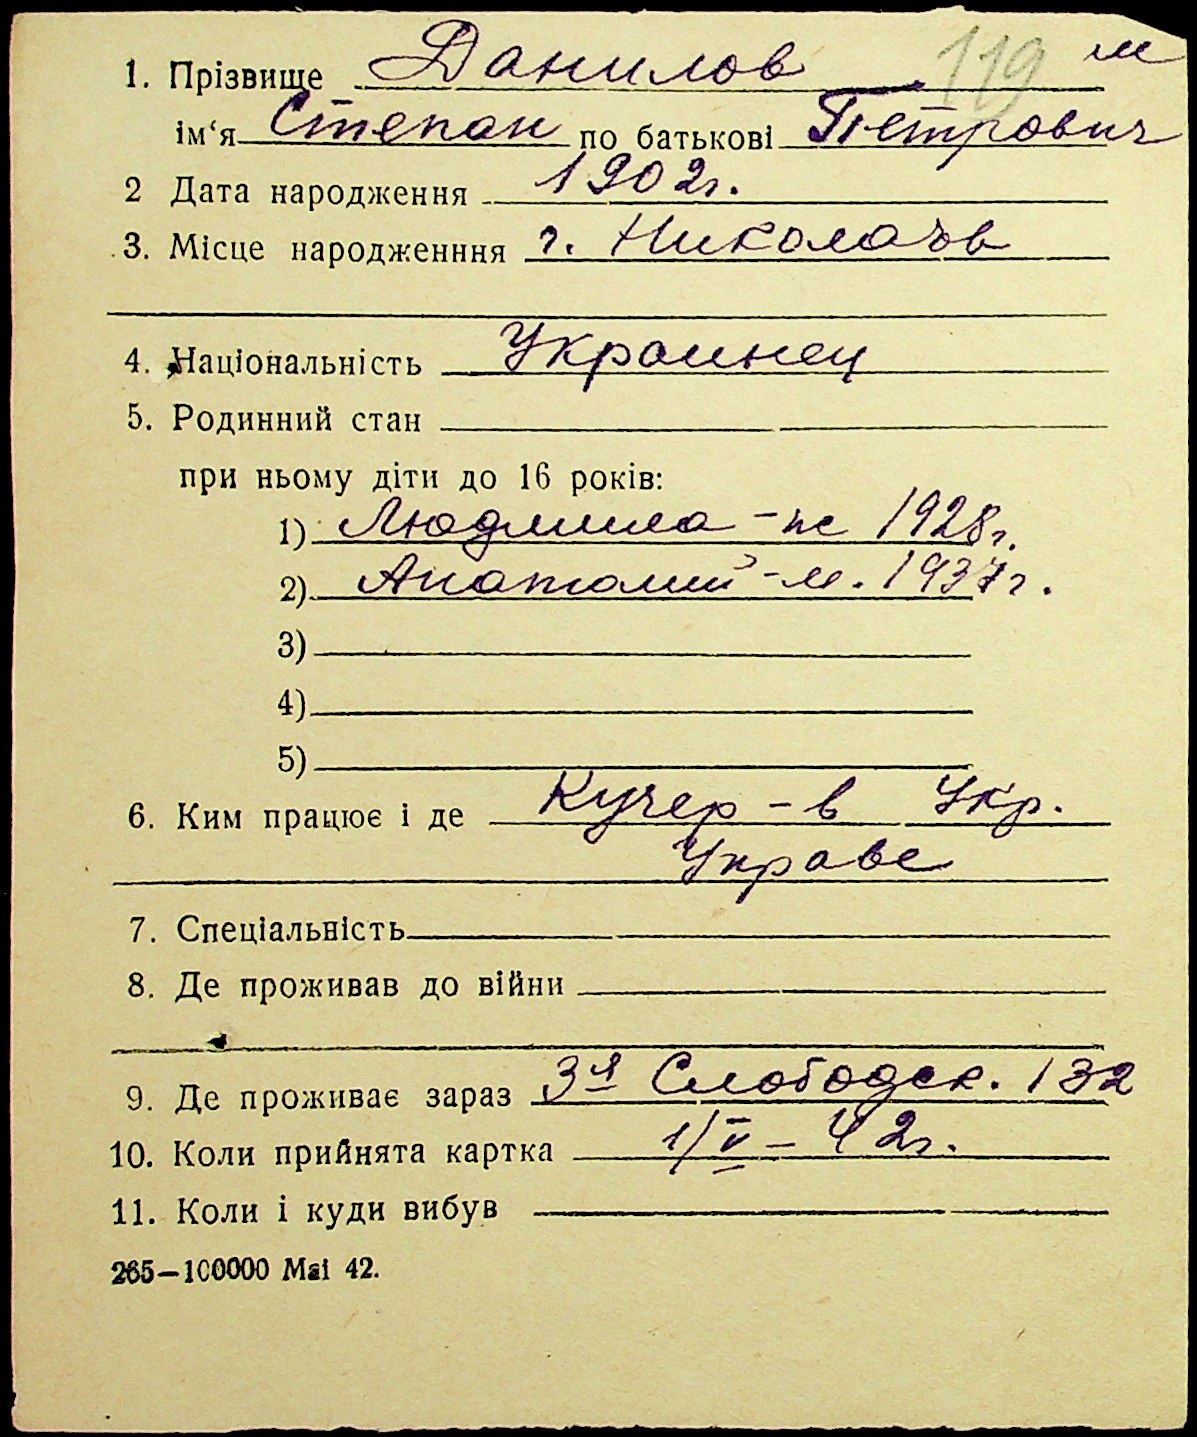 1. Прізвище Данилов 119 м
ім‘я Степан по батькові Петрович
2 Дата народження 1902г.
3. Місце народженння г. Николаевъ
4. Національність Украинец
5. Родинний стан
при ньому діти до 16 років:
1) Людмила - ж 1928г.
2) Анатолий - м. 1937г.
3)
4)
5)
6. Ким працює і де Кучер - в Укр.
Управе
7. Спеціальність
8. Де проживав до війни
9. Де проживає зараз 3я Слободск. 132
10. Коли прийнята картка 1/V - 42г.
11. Коли і куди вибув
265—100000 Mai 42.